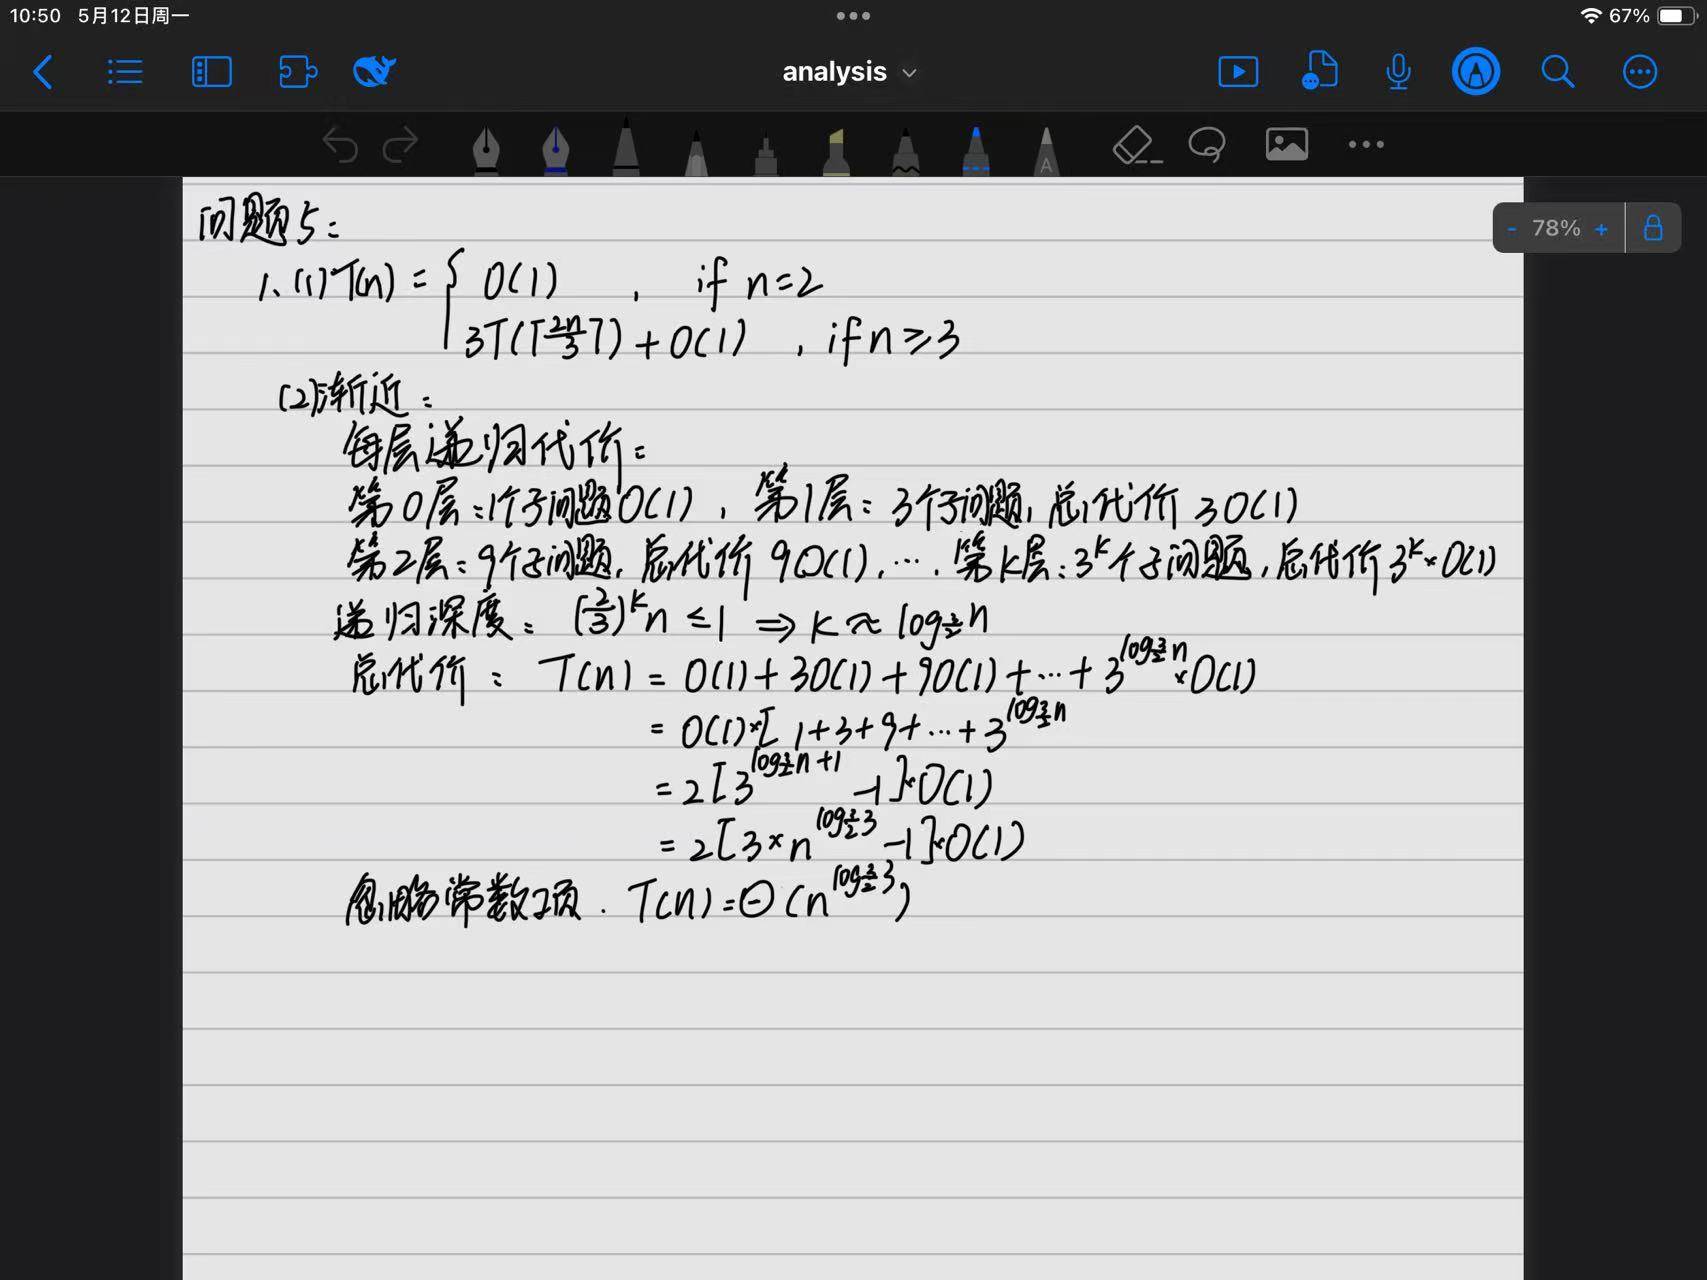 10:50 5月12日周一
67%
analysis
A
- 78% +
问题5:
1、(1) T(n) = { O(1) , if n=2
3T(⌈2n/3⌉) + O(1) , if n ≥ 3
(2)渐近:
每层递归代价:
第0层:1个子问题O(1), 第1层: 3个子问题, 总代价 3O(1)
第2层: 9个子问题, 总代价 9O(1), …, 第k层: 3^k个子问题, 总代价 3^k × O(1)
递归深度: (2/3)^k n ≤ 1 ⇒ k ≈ log_{3/2} n
总代价: T(n) = O(1) + 3O(1) + 9O(1) + … + 3^{log_{3/2} n} × O(1)
= O(1) × [ 1+3+9+…+3^{log_{3/2} n}
= 2[3^{log_{3/2} n +1} -1] × O(1)
= 2[3 × n^{log_{3/2} 3} -1] × O(1)
忽略常数项. T(n) = Θ(n^{log_{3/2} 3})